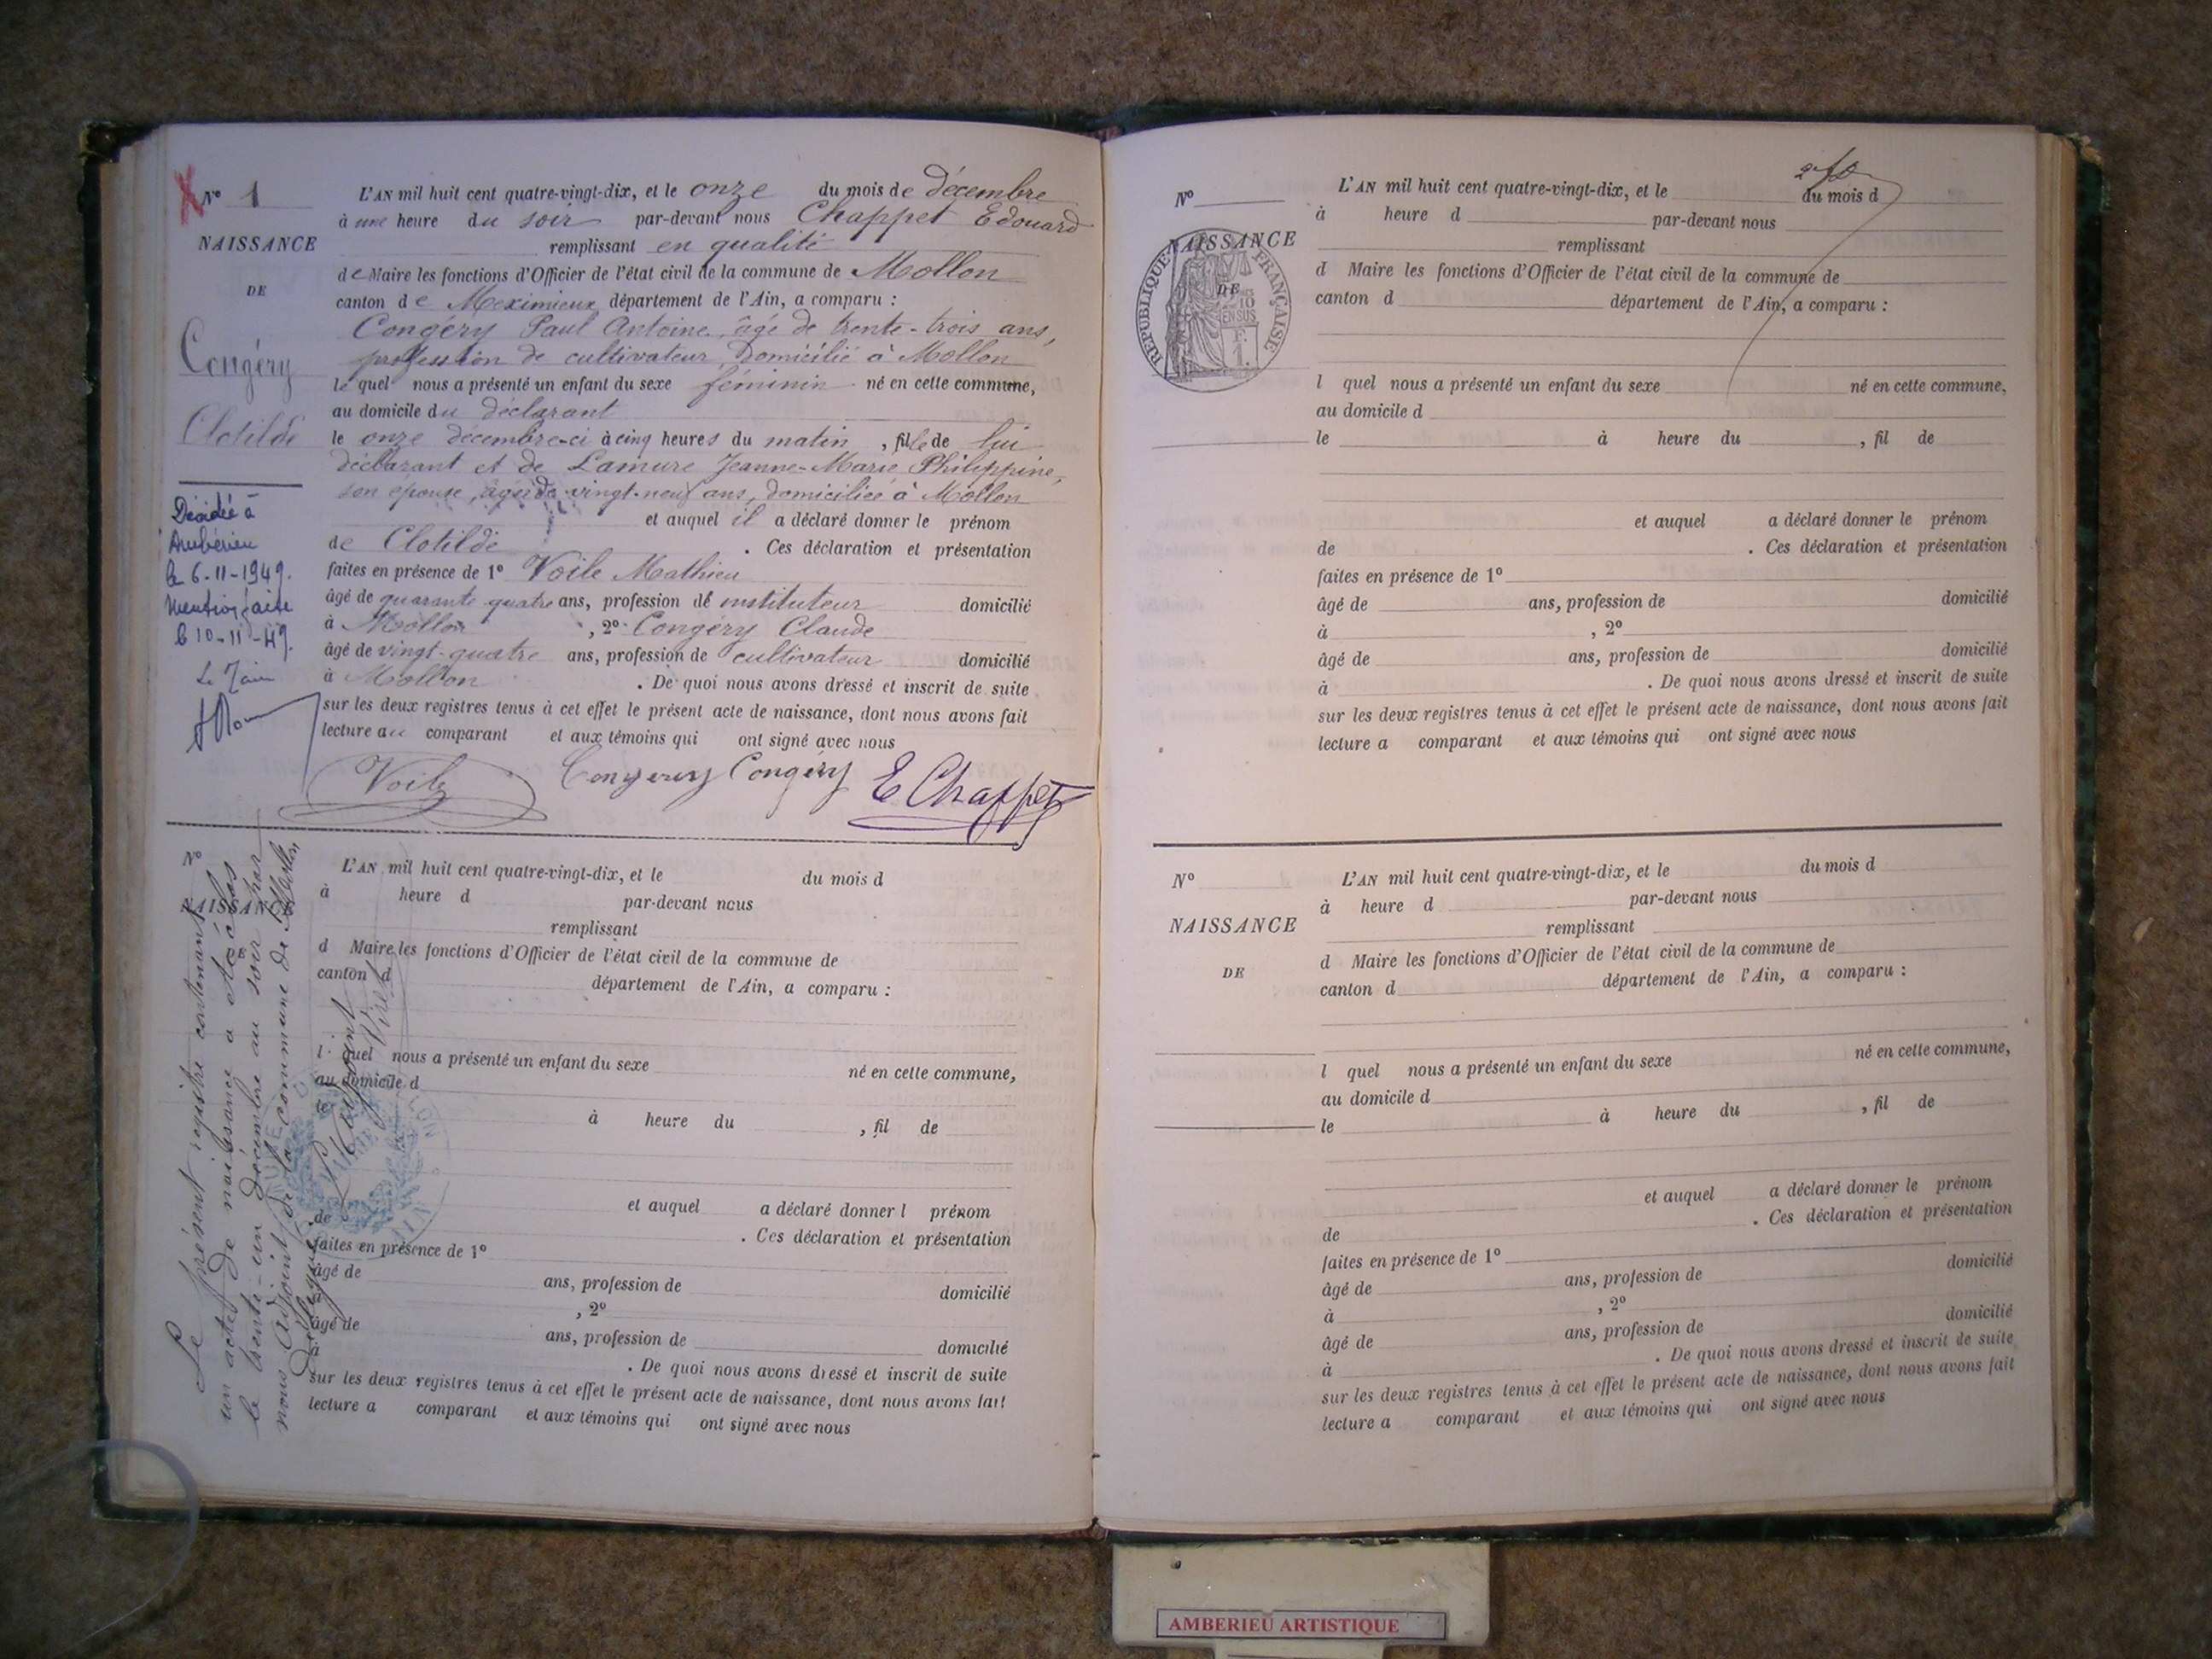 Nº 1
NAISSANCE
DE
Congéry
Clotilde
Décédée à
Ambérieu
le 6-11-1949.
Mention faite
le 10-11-49.
Le Maire
L'AN mil huit cent quatre-vingt-dix, et le onze du mois de décembre
à une heure du soir par-devant nous Chappet Edouard
remplissant en qualité
de Maire les fonctions d'Officier de l'état civil de la commune de Mollon
canton de Meximieux département de l'Ain, a comparu :
Congéry Paul Antoine, âgé de trente-trois ans,
profession de cultivateur, domicilié à Mollon
lequel nous a présenté un enfant du sexe féminin né en cette commune,
au domicile du déclarant
le onze décembre-ci à cinq heures du matin, fille de lui
déclarant et de Lamure Jeanne-Marie Philippine,
son épouse, âgée de vingt-neuf ans, domiciliée à Mollon
et auquel il a déclaré donner le prénom
de Clotilde . Ces déclaration et présentation
faites en présence de 1º Voile Mathieu
âgé de quarante quatre ans, profession de instituteur domicilié
à Mollon , 2º Congéry Claude
âgé de vingt-quatre ans, profession de cultivateur domicilié
à Mollon . De quoi nous avons dressé et inscrit de suite
sur les deux registres tenus à cet effet le présent acte de naissance, dont nous avons fait
lecture au comparant et aux témoins qui ont signé avec nous
Voile Congéry Congéry E Chappet
Nº
NAISSANCE
DE
Le présent registre contenant
un acte de naissance a été clos
le trente-un décembre au soir par
nous Adjoint de la commune de Mollon
L'Adjoint
L'AN mil huit cent quatre-vingt-dix, et le du mois d
à heure d par-devant nous
remplissant
d Maire les fonctions d'Officier de l'état civil de la commune de
canton d département de l'Ain, a comparu :
l quel nous a présenté un enfant du sexe né en cette commune,
au domicile d
le à heure du , fil de
et auquel a déclaré donner l prénom
de . Ces déclaration et présentation
faites en présence de 1º
âgé de ans, profession de domicilié
à , 2º
âgé de ans, profession de domicilié
à . De quoi nous avons dressé et inscrit de suite
sur les deux registres tenus à cet effet le présent acte de naissance, dont nous avons fait
lecture a comparant et aux témoins qui ont signé avec nous
Nº
NAISSANCE
DE
REPUBLIQUE FRANÇAISE
L'AN mil huit cent quatre-vingt-dix, et le du mois d
à heure d par-devant nous
remplissant
d Maire les fonctions d'Officier de l'état civil de la commune de
canton d département de l'Ain, a comparu :
l quel nous a présenté un enfant du sexe né en cette commune,
au domicile d
le à heure du , fil de
et auquel a déclaré donner le prénom
de . Ces déclaration et présentation
faites en présence de 1º
âgé de ans, profession de domicilié
à , 2º
âgé de ans, profession de domicilié
à . De quoi nous avons dressé et inscrit de suite
sur les deux registres tenus à cet effet le présent acte de naissance, dont nous avons fait
lecture a comparant et aux témoins qui ont signé avec nous
Nº
NAISSANCE
DE
L'AN mil huit cent quatre-vingt-dix, et le du mois d
à heure d par-devant nous
remplissant
d Maire les fonctions d'Officier de l'état civil de la commune de
canton d département de l'Ain, a comparu :
l quel nous a présenté un enfant du sexe né en cette commune,
au domicile d
le à heure du , fil de
et auquel a déclaré donner le prénom
de . Ces déclaration et présentation
faites en présence de 1º
âgé de ans, profession de domicilié
à , 2º
âgé de ans, profession de domicilié
à . De quoi nous avons dressé et inscrit de suite
sur les deux registres tenus à cet effet le présent acte de naissance, dont nous avons fait
lecture a comparant et aux témoins qui ont signé avec nous
AMBERIEU ARTISTIQUE